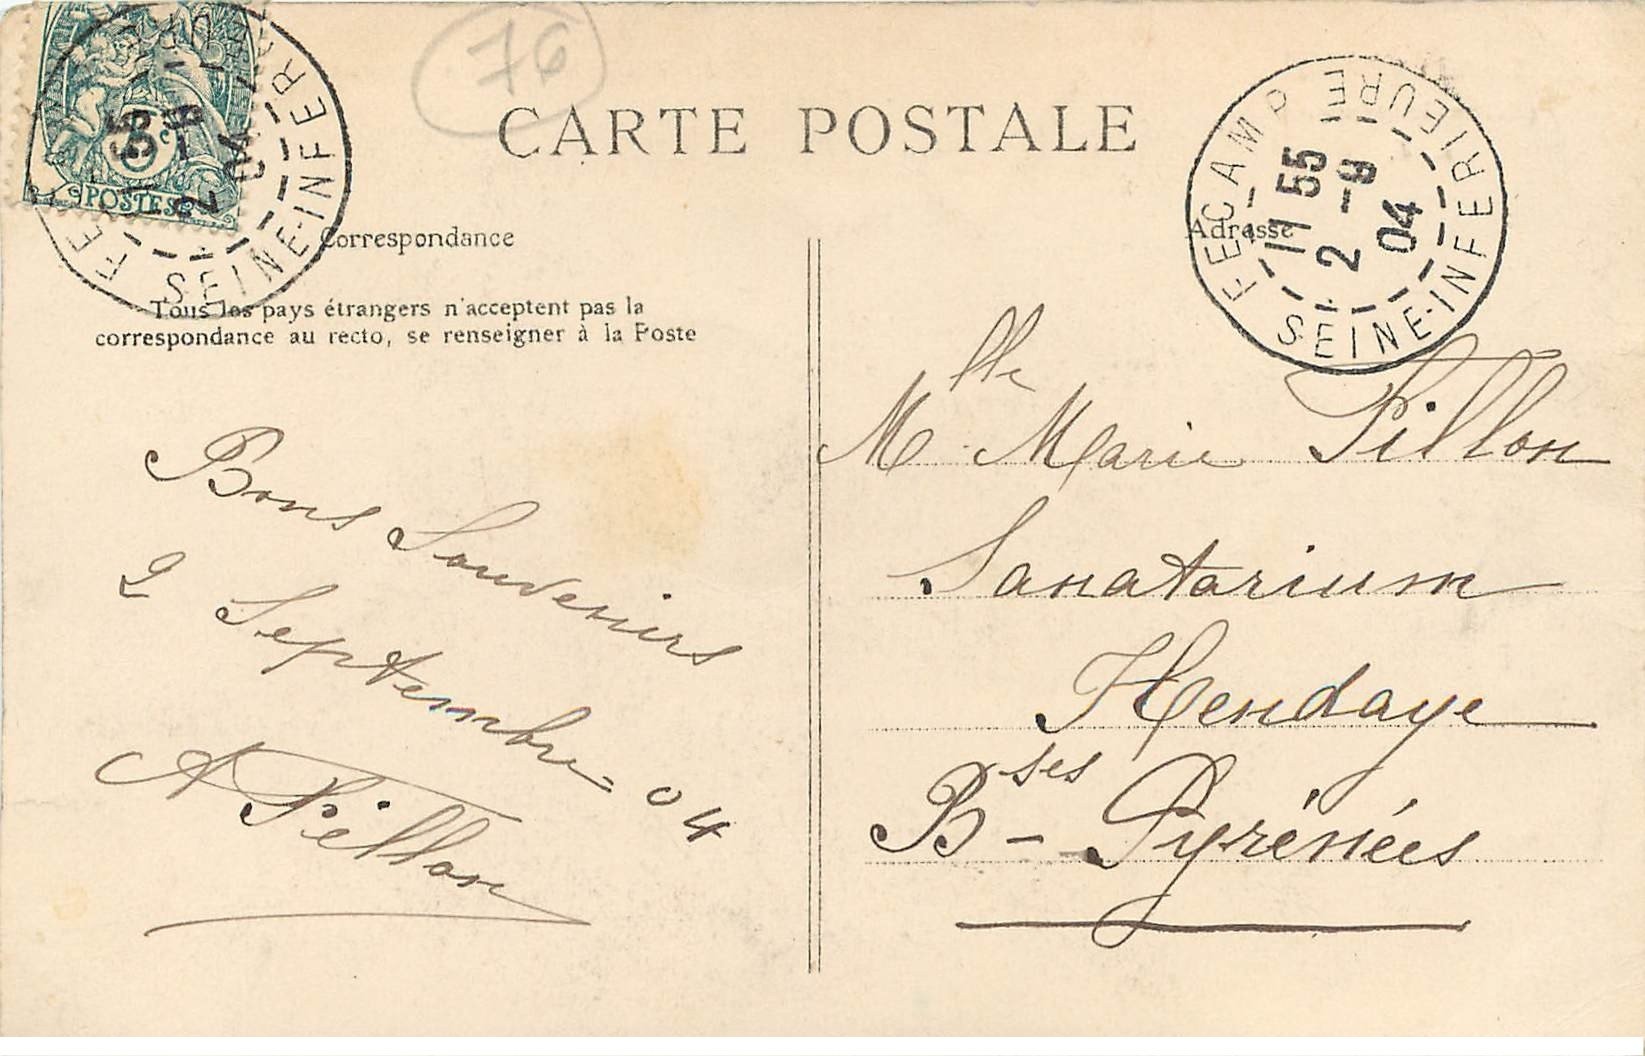 76
CARTE POSTALE
POSTES
5
FECAMP
11 55
2 -9
04
SEINE-INFERIEURE
FECAMP
11 55
2 -9
04
SEINE-INFERIEURE
Correspondance
Tous les pays étrangers n'acceptent pas la
correspondance au recto, se renseigner à la Poste
Bons Souvenirs
2 Septembre = 04
A Tillon
Adresse
Mlle Marie Tillon
Sanatorium
Hendaye
Bses - Pyrénées